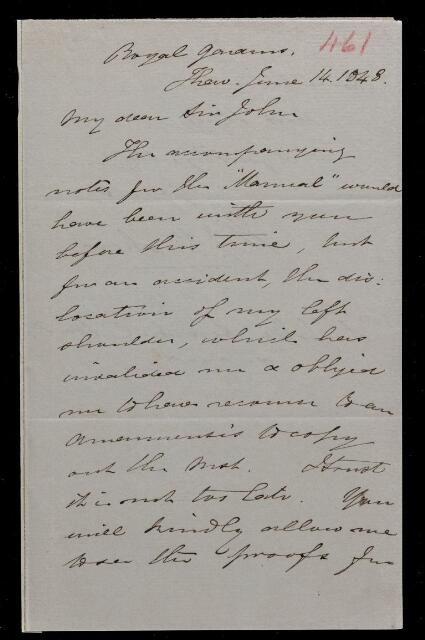 461
Royal Gardens.
Kew. June 14. 1848.
My dear Sir John
The accompanying
notes for the "Manual" would
have been with you
before this time, but
for an accident, the dis:
location of my left
shoulder, which has
invalided me & obliged
me to have recourse to an
amanuensis to copy
out the Msh. I trust
it is not too late. You
will kindly allow me
to see the proofs for